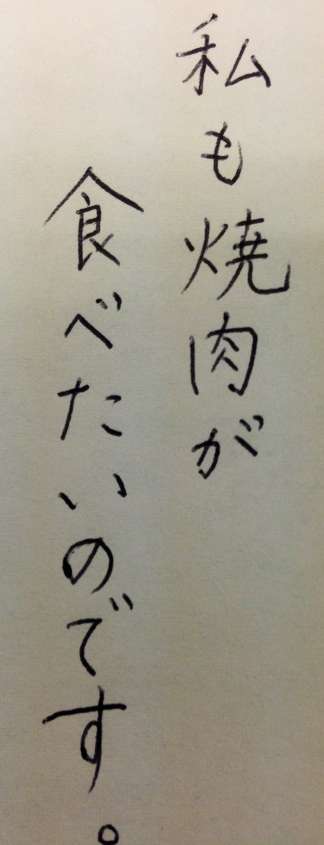 私も焼肉が
食べたいのです。